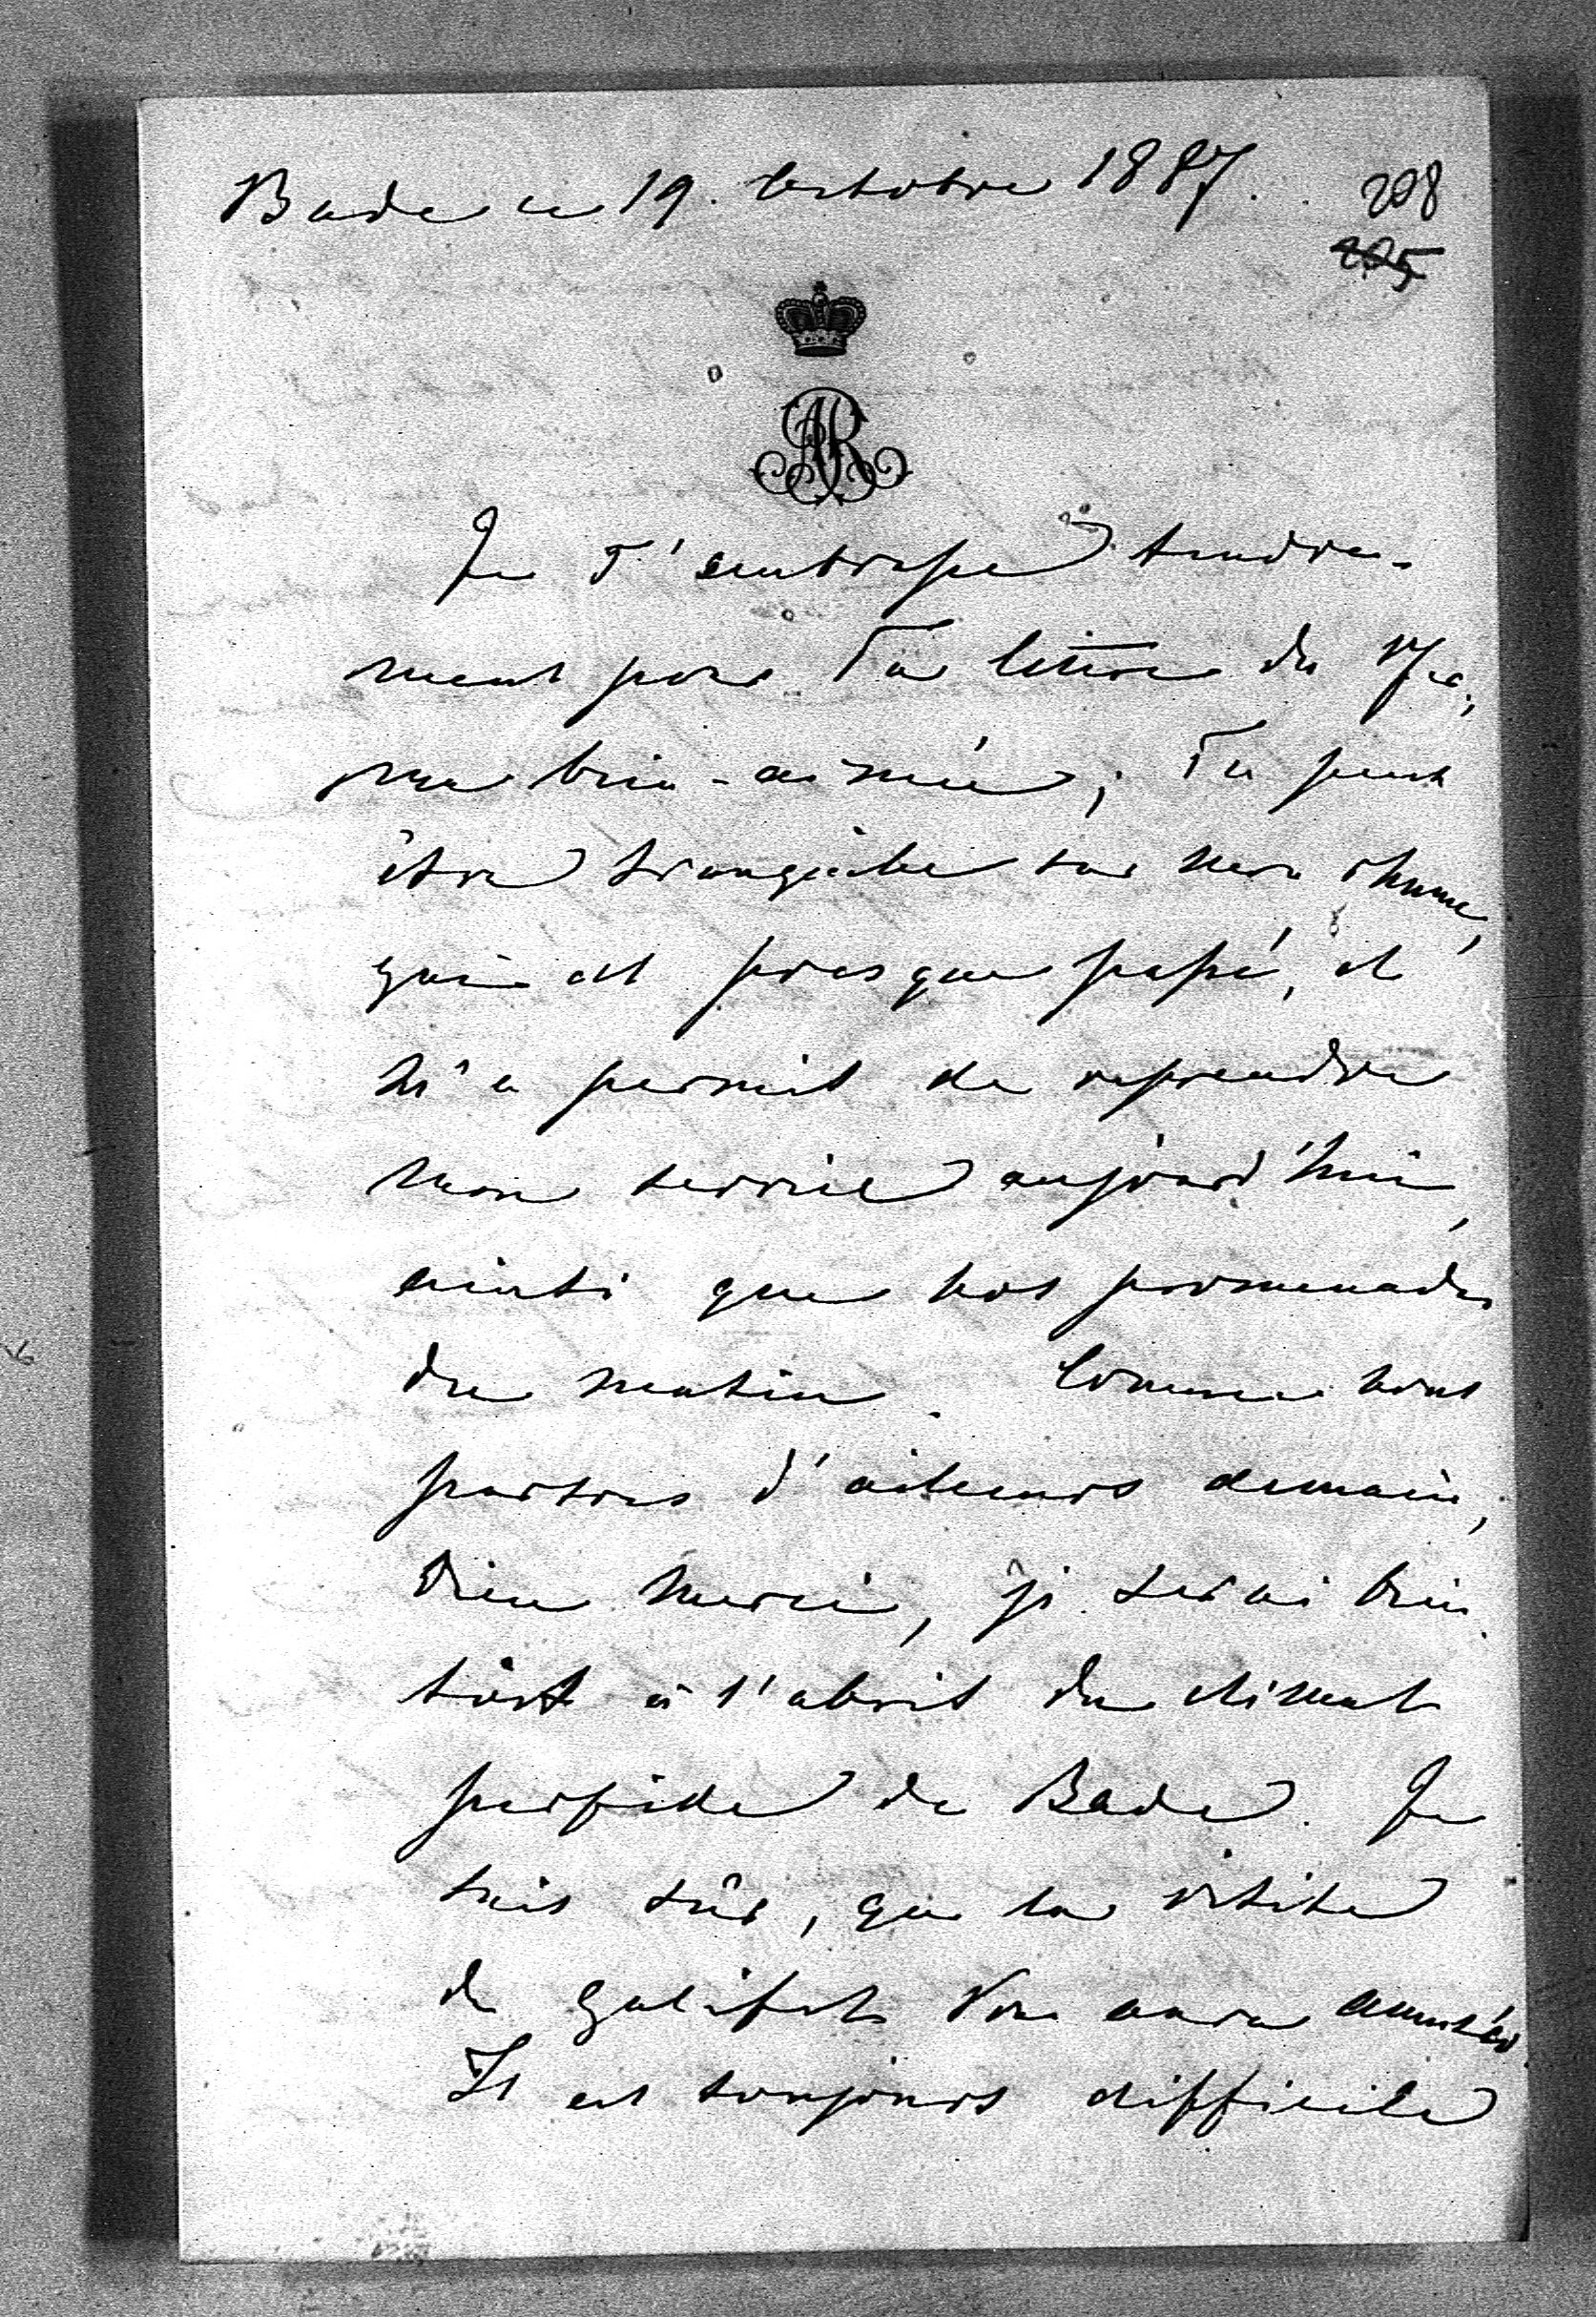 Bade ce 19. Octobre 1887.
208
225
AR
Je T'embrasse tendre-
ment pour Ta lettre du 17 ct,
ma bien-aimée; Tu peux
être tranquille sur mon rhume,
qui est presque passé, et
m'a permit de reprendre
mon service aujourd'hui,
ainsi que nos promenades
du matin. Comme nous
partons d'ailleurs demain,
Dieu merci, je serai bien
tôt à l'abrit du climat
perfide de Bade. Je
suis sûr, que la visite
de Galifet Vous aura amusées.
Il est toujours difficile